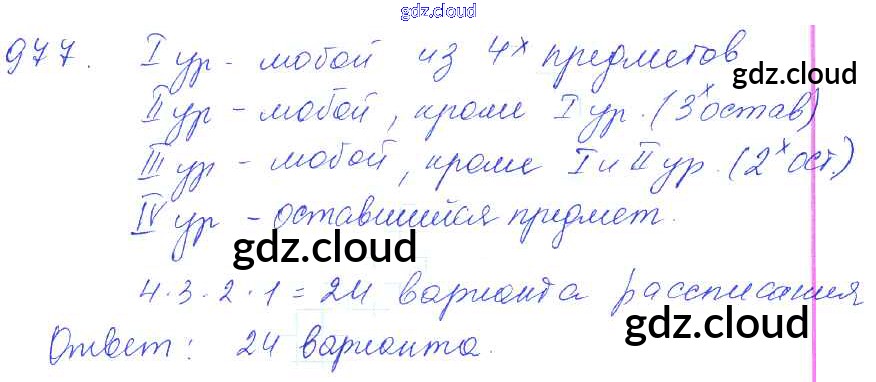 gdz.cloud
977. I ур - любой из 4х предметов
gdz.cloud
II ур - любой, кроме I ур. (3х остав)
III ур - любой, кроме I и II ур. (2х ост.)
IV ур - оставшийся предмет.
gdz.cloud
gdz.cloud
4·3·2·1=24 варианта рассписания
gdz.cloud
Ответ: 24 варианта.